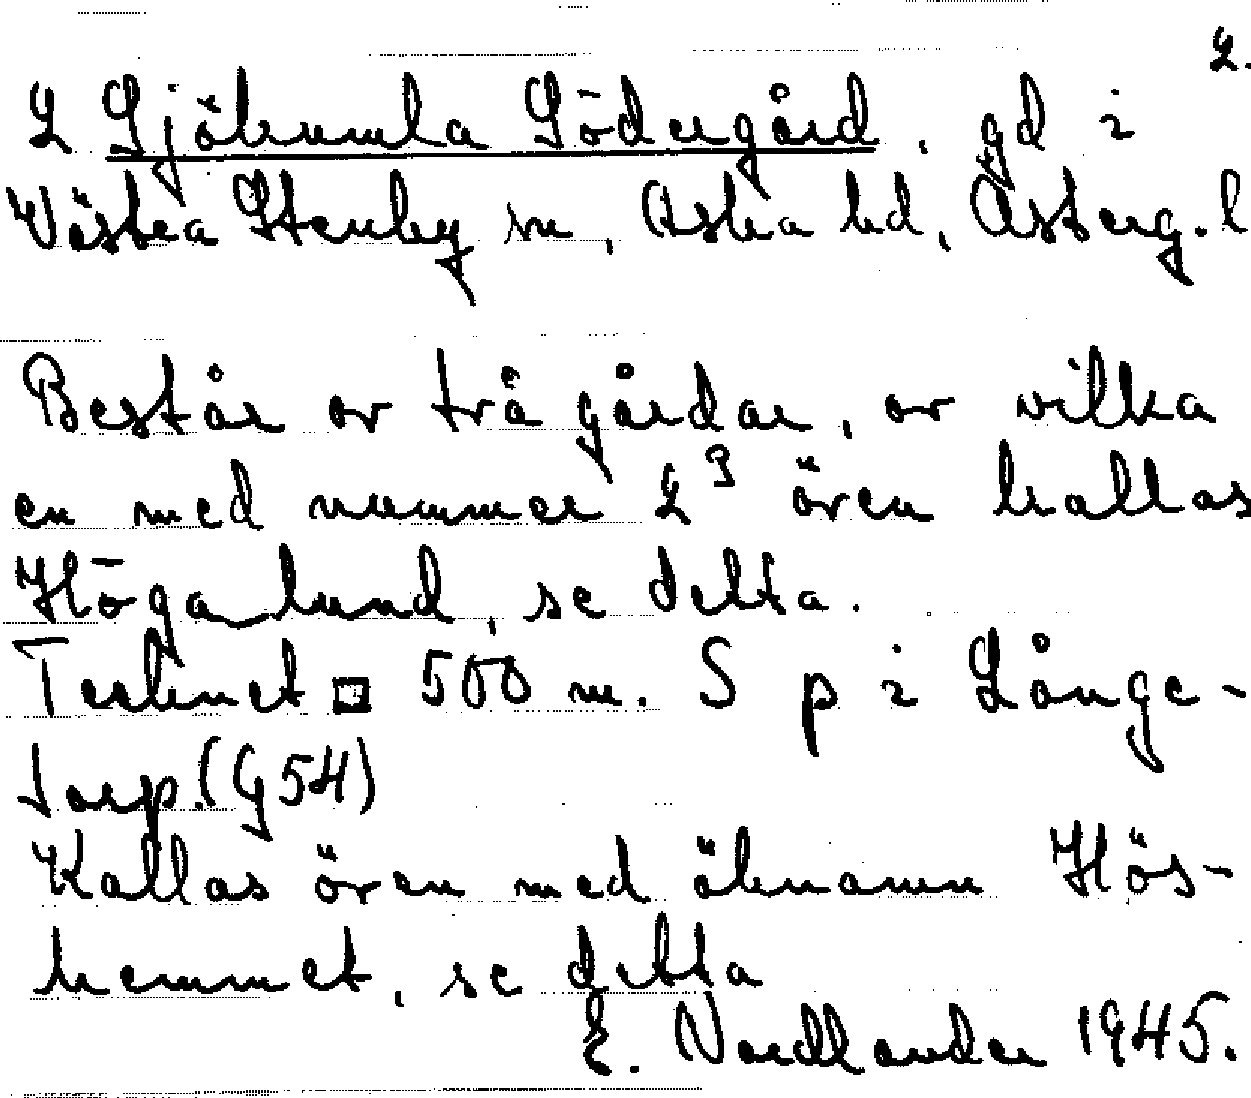 2.
2 Sjökumla Södergård, gd i
Västra Stenby sn, Aska hd, Österg. l
Består av två gårdar, av vilka
en med nummer 2³ även kallas
Högalund, se detta.
Tecknet □ 500 m. S p i Långe-
torp. (G54)
Kallas även med öknamn Hös-
hemmet, se detta
E. Nordlander 1945.